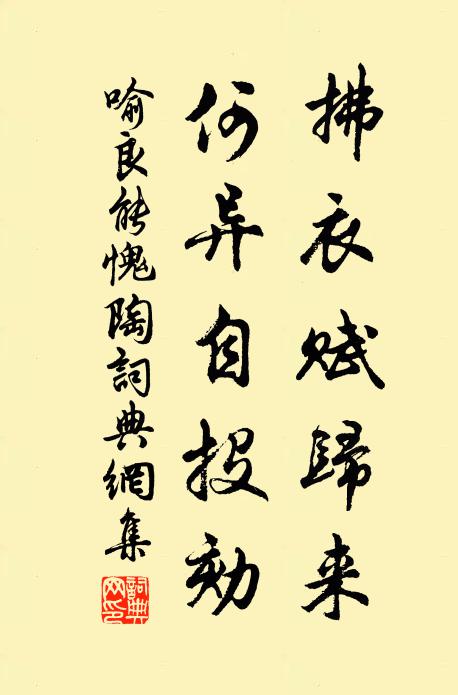 拂衣赋歸来
何异自投劾
喻良能愧陶詞典網集
詞典网印